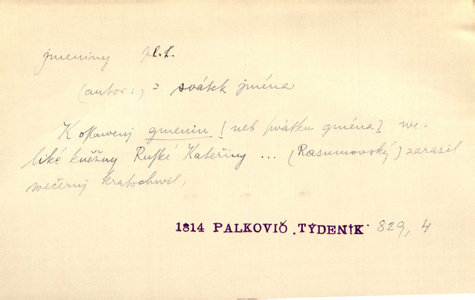 gmeniny pl. t.
(autor:) = svátek gména
K oslawenj gmenin [neb swátku gména] we-
liké kněžny Ruské Kateřiny ... (Rasumovský) zarasil
wečernj kratochwil,
1814 PALKOVIČ ,TÝDENÍK 829, 4